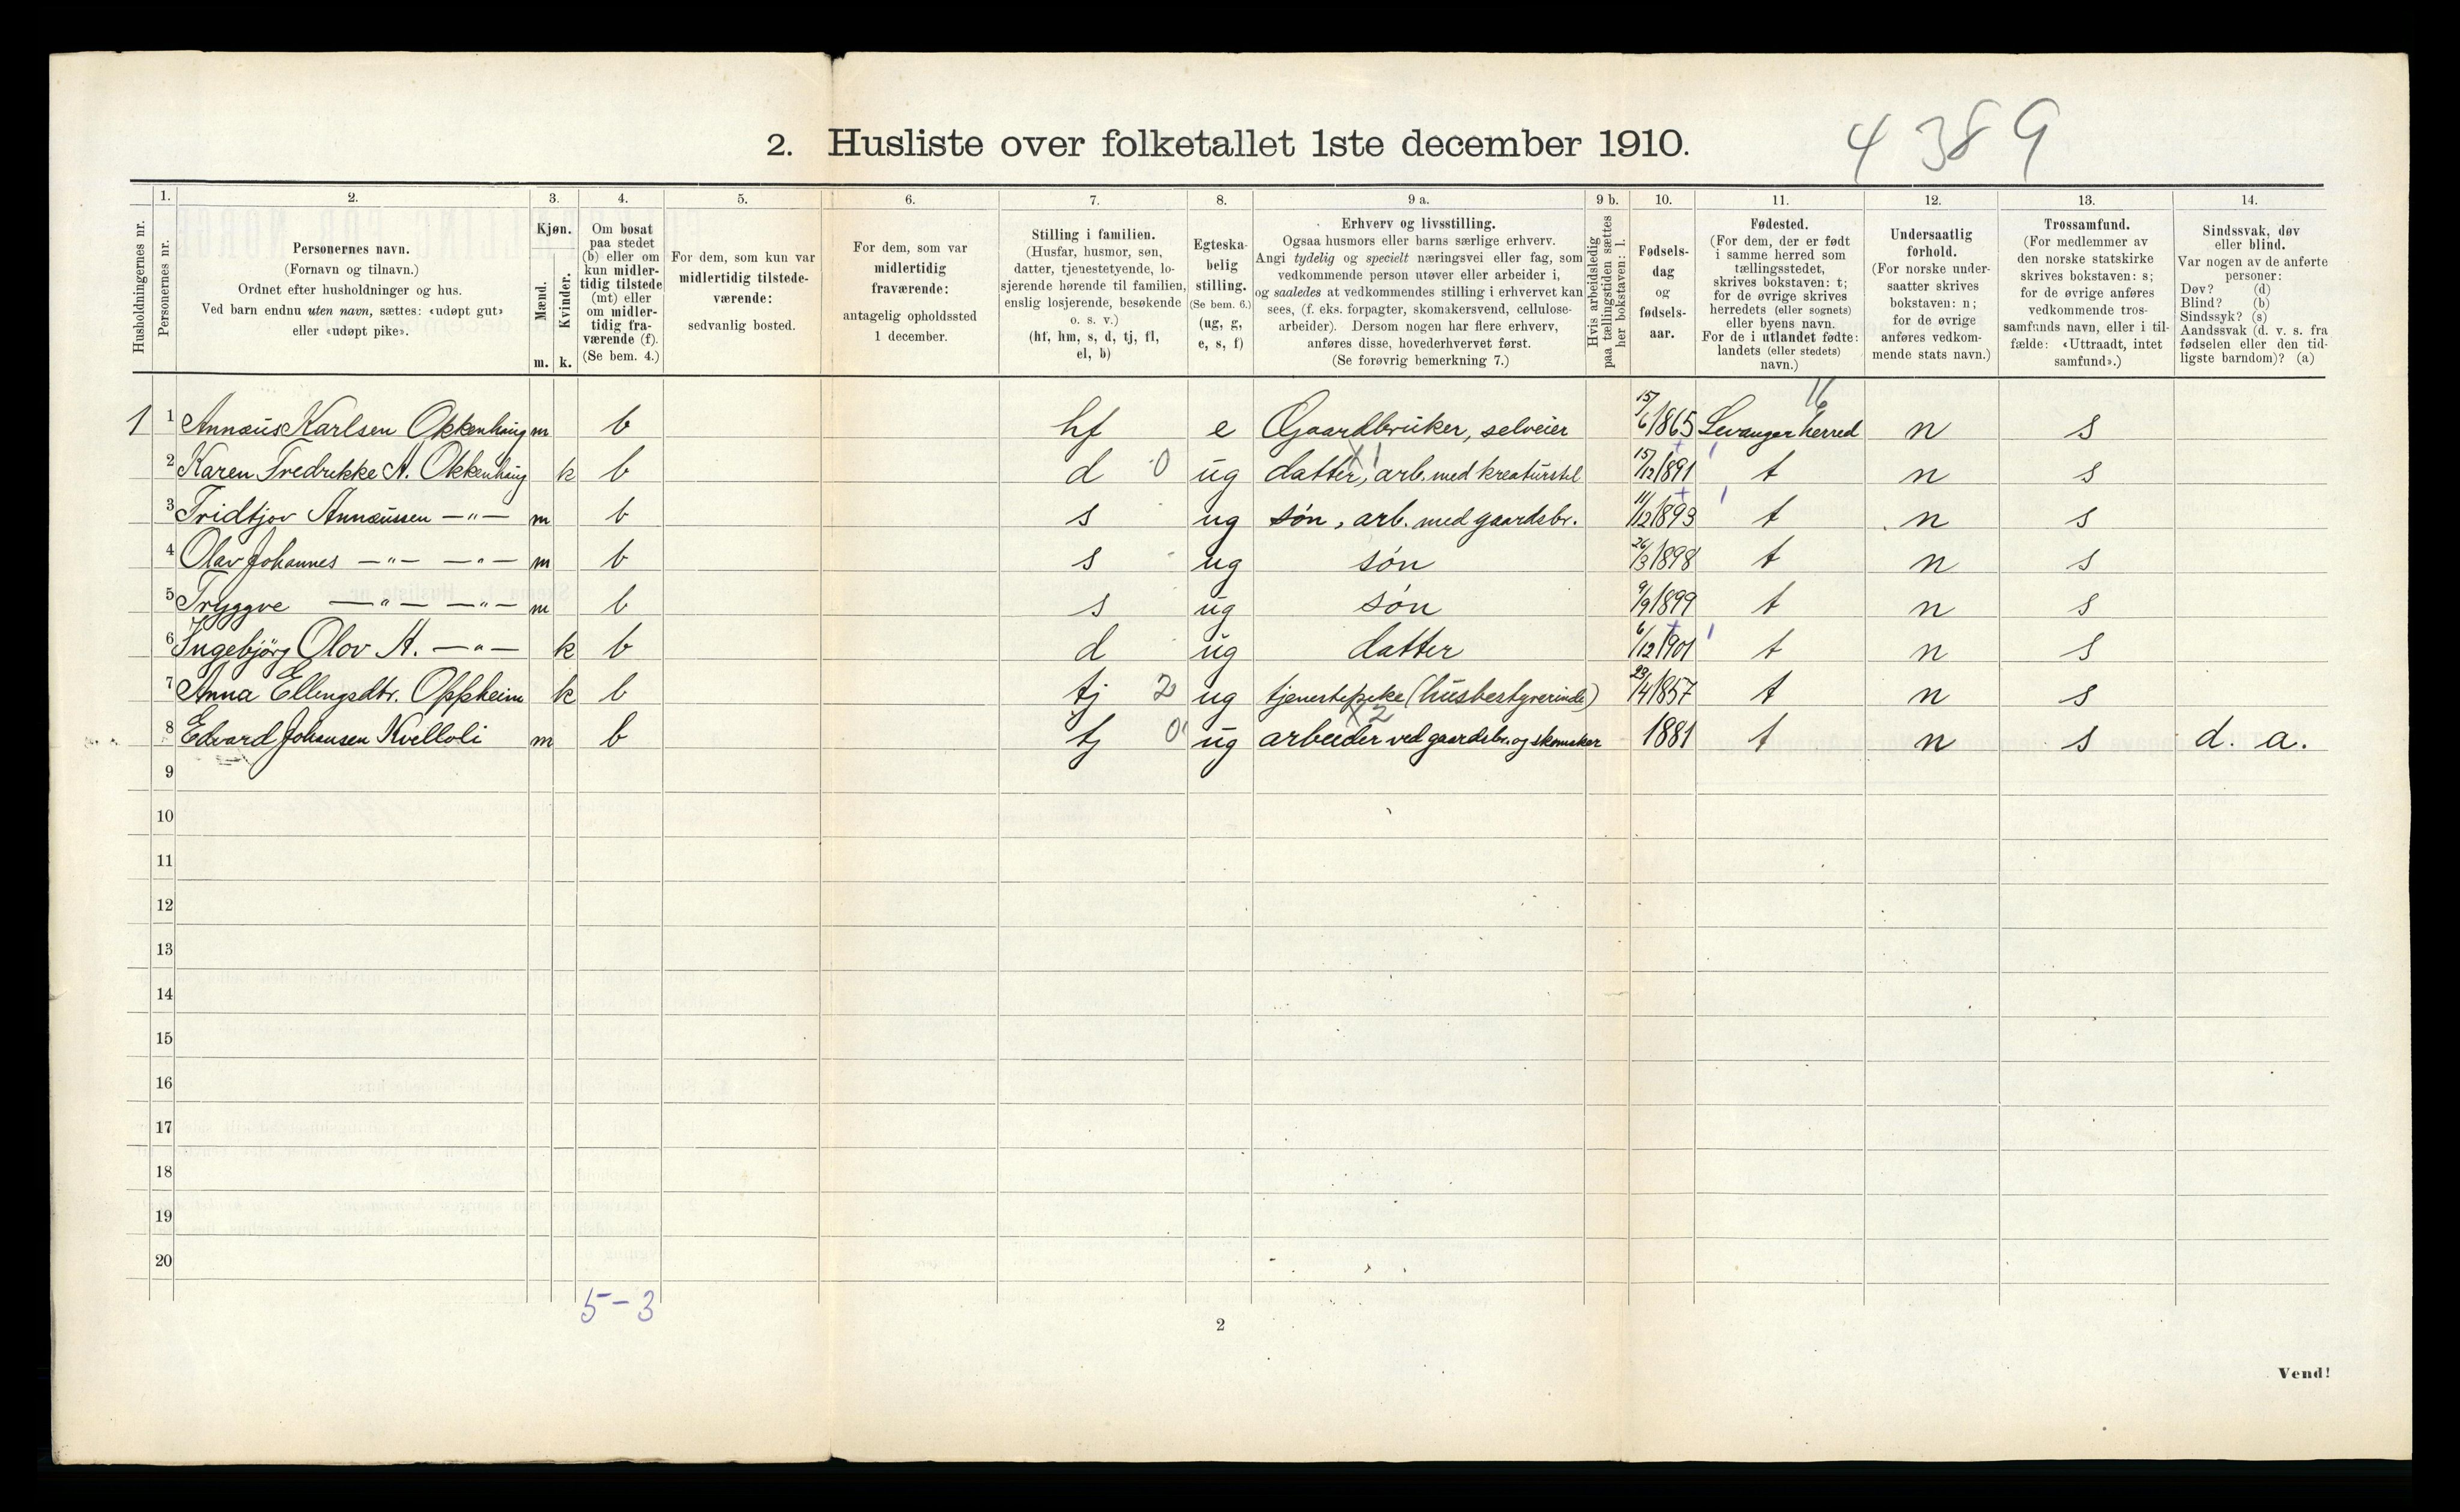 4 389
2. Husliste over folketallet 1ste december 1910.
Husholdningernes nr.
1.
Personernes nr.
2.
Personernes navn.
(Fornavn og tilnavn.)
Ordnet efter husholdninger og hus.
Ved barn endnu uten navn, sættes: «udøpt gut»
eller «udøpt pike».
3.
Kjøn.
Mænd.
Kvinder.
m. k.
4.
Om bosat
paa stedet
(b) eller om
kun midler-
tidig tilstede
(mt) eller
om midler-
tidig fra-
værende (f).
(Se bem. 4.)
5.
For dem, som kun var
midlertidig tilstede-
værende:
sedvanlig bosted.
6.
For dem, som var
midlertidig
fraværende:
antagelig opholdssted
1 december.
7.
Stilling i familien.
(Husfar, husmor, søn,
datter, tjenestetyende, lo-
sjerende hørende til familien,
enslig losjerende, besøkende
o. s. v.)
(hf, hm, s, d, tj, fl,
el, b)
8.
Egteska-
belig
stilling.
(Se bem. 6.)
(ug, g,
e, s, f)
9 a.
Erhverv og livsstilling.
Ogsaa husmors eller barns særlige erhverv.
Angi tydelig og specielt næringsvei eller fag, som
vedkommende person utøver eller arbeider i,
og saaledes at vedkommendes stilling i erhvervet kan
sees, (f. eks. forpagter, skomakersvend, cellulose-
arbeider). Dersom nogen har flere erhverv,
anføres disse, hovederhvervet først.
(Se forøvrig bemerkning 7.)
9 b.
Hvis arbeidsledig
paa tællingstiden sættes
her bokstaven: l.
10.
Fødsels-
dag
og
fødsels-
aar.
11.
Fødested.
(For dem, der er født
i samme herred som
tællingsstedet,
skrives bokstaven: t;
for de øvrige skrives
herredets (eller sognets)
eller byens navn.
For de i utlandet fødte:
landets (eller stedets)
navn.)
12.
Undersaatlig
forhold.
(For norske under-
saatter skrives
bokstaven: n;
for de øvrige
anføres vedkom-
mende stats navn.)
13.
Trossamfund.
(For medlemmer av
den norske statskirke
skrives bokstaven: s;
for de øvrige anføres
vedkommende tros-
samfunds navn, eller i til-
fælde: «Uttraadt, intet
samfund».)
14.
Sindssvak, døv
eller blind.
Var nogen av de anførte
personer:
Døv? (d)
Blind? (b)
Sindssyk? (s)
Aandssvak (d. v. s. fra
fødselen eller den tid-
ligste barndom)? (a)
16
1 1 Annæus Karlsen Okkenhaug m b hf e Gaardbruker, selveier 15/6 1865 Levanger herred n s
2 Karen Fredrikke A. Okkenhaug k b d 0 ug datter, arb. med kreaturstel 15/12 1891 t n s
3 Fridtjov Annæussen —"— m b s ug søn, arb. med gaardsbr. 11/12 1893 t n s
4 Olav Johannes —"— —"— m b s ug søn 26/3 1898 t n s
5 Tryggve —"— —"— m b s ug søn 9/9 1899 t n s
6 Ingebjørg Olov A. —"— k b d ug datter 6/12 1901 t n s
7 Anna Ellingsdtr. Oppheim k b tj 2 ug tjenestepike (husbestyrerinde) 23/4 1857 t n s
x 2
8 Edvard Johansen Kvelloli m b tj 0 ug arbeider ved gaardsbr. og skomaker 1881 t n s d. a.
9
10
11
12
13
14
15
16
17
18
19
20
5 - 3
2
Vend!